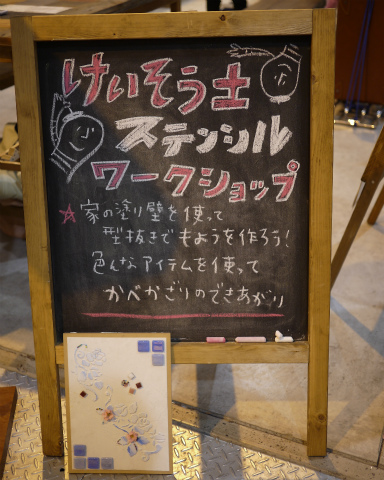 けいそう土
ステンシル
ワークショップ
☆家の塗り壁を使って
型抜きでもようを作ろう!
色んなアイテムを使って
かべかざりのできあがり